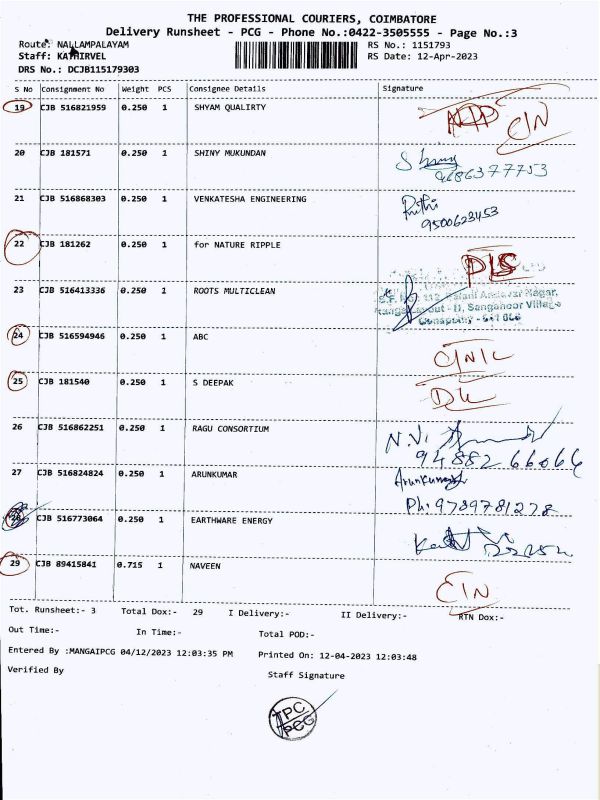 THE PROFESSIONAL COURIERS, COIMBATORE
Delivery Runsheet - PCG - Phone No.:0422-3505555 - Page No.:3
Route: NALLAMPALAYAM RS No.: 1151793
Staff: KATHIRVEL RS Date: 12-Apr-2023
DRS No.: DCJB115179303
S No Consignment No Weight PCS Consignee Details Signature
19 CJB 516821959 0.250 1 SHYAM QUALIRTY
20 CJB 181571 0.250 1 SHINY MUKUNDAN
21 CJB 516868303 0.250 1 VENKATESHA ENGINEERING
9500623453
22 CJB 181262 0.250 1 for NATURE RIPPLE
23 CJB 516413336 0.250 1 ROOTS MULTICLEAN
24 CJB 516594946 0.250 1 ABC
25 CJB 181540 0.250 1 S DEEPAK
26 CJB 516862251 0.250 1 RAGU CONSORTIUM
94882 66066
27 CJB 516824824 0.250 1 ARUNKUMAR Arunkumar
Ph: 9789781278
CJB 516773064 0.250 1 EARTHWARE ENERGY
29 CJB 89415841 0.715 1 NAVEEN
Tot. Runsheet:- 3 Total Dox:- 29 I Delivery:- II Delivery:- RTN Dox:-
Out Time:- In Time:- Total POD:-
Entered By :MANGAIPCG 04/12/2023 12:03:35 PM Printed On: 12-04-2023 12:03:48
Verified By Staff Signature
TPC
PCG